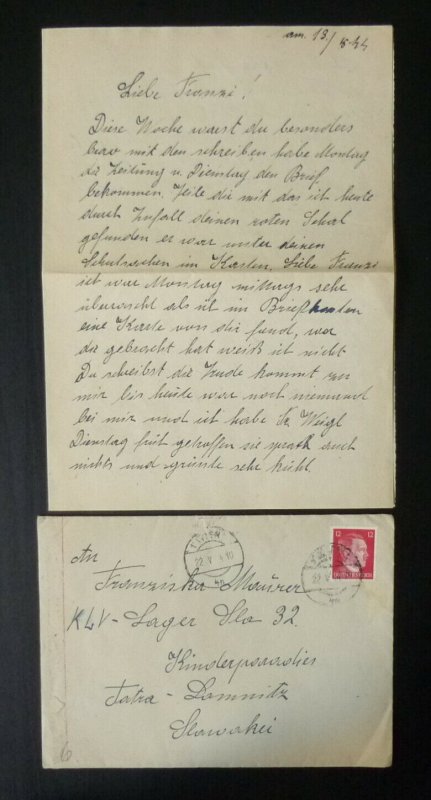 am. 18/5.44
Liebe Franzi!
Diese Woche warst du besonders
brav mit den schreiben habe Montag
die Zeitung u. Dienstag den Brief
bekommen. Teile dir mit das ich heute
durch Zufall deinen roten Schal
gefunden er war unter deinen
Schulsachen im Kasten. Liebe Franzi
ich war Montag mittags sehr
überrascht als ich im Briefkasten
eine Karte von dir fand, wer
die gebracht hat weiß ich nicht
Du schreibst die kommt zu
mir bis heute war noch niemand
bei mir und ich habe Fr. Weigl
Dienstag früh getroffen sie sprach auch
nichts und grüsste sehr kühl.
WIEN
22. V
12
12
An
Franziska Maurer
KLV-Lager Slo 32.
Kinderparadies
Tatra-Lomnitz
Slowakei
6